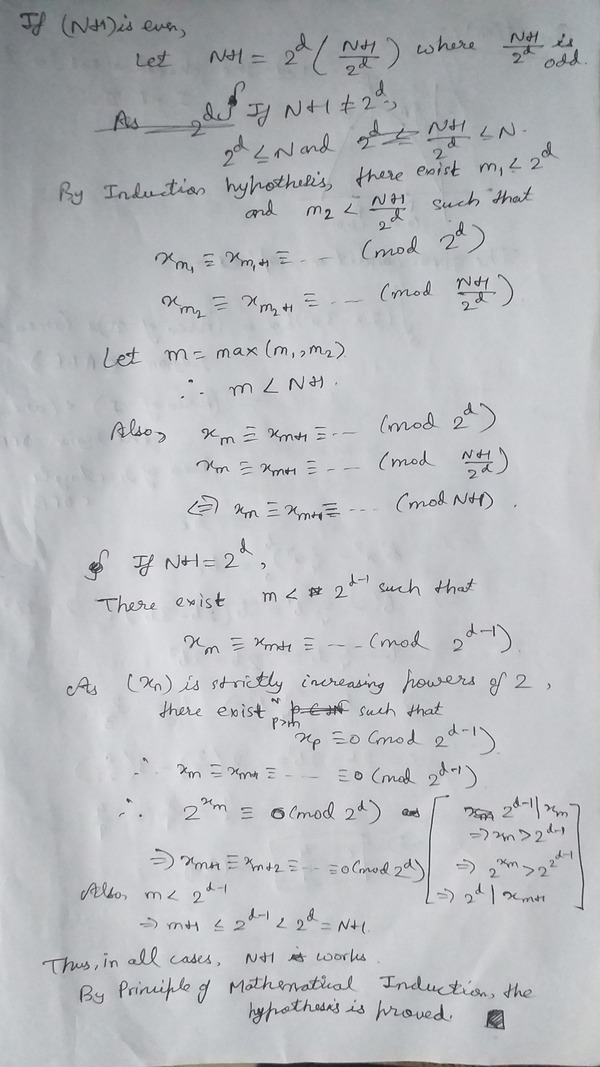 If (N+1) is even,
Let N+1 = 2^d (N+1/2^d) where N+1/2^d is odd.
As 2^d If N+1 ≠ 2^d,
2^d ≤ N and 2^d ≤ N+1/2^d ≤ N.
By Induction hypothesis, there exist m₁ < 2^d
and m₂ < N+1/2^d such that
x_{m₁} ≡ x_{m₁+1} ≡ ... (mod 2^d)
x_{m₂} ≡ x_{m₂+1} ≡ ... (mod N+1/2^d)
Let m = max(m₁, m₂)
∴ m < N+1.
Also, x_m ≡ x_{m+1} ≡ ... (mod 2^d)
x_m ≡ x_{m+1} ≡ ... (mod N+1/2^d)
⇔ x_m ≡ x_{m+1} ≡ ... (mod N+1).
If N+1 = 2^d,
There exist m < 2^{d-1} such that
x_m ≡ x_{m+1} ≡ ... (mod 2^{d-1})
As (x_n) is strictly increasing powers of 2,
there exist p>m such that
x_p ≡ 0 (mod 2^{d-1})
∴ x_m ≡ x_{m+1} ≡ ... ≡ 0 (mod 2^{d-1})
∴ 2^{x_m} ≡ 0 (mod 2^d) [2^{d-1} | x_m
⇒ x_m > 2^{d-1}
⇒ 2^{x_m} > 2^{2^{d-1}}
⇒ 2^d | x_{m+1}]
⇒ x_{m+1} ≡ x_{m+2} ≡ ... ≡ 0 (mod 2^d)
Also, m < 2^{d-1}
⇒ m+1 ≤ 2^{d-1} < 2^d = N+1.
Thus, in all cases, N+1 works.
By Principle of Mathematical Induction, the
hypothesis is proved.